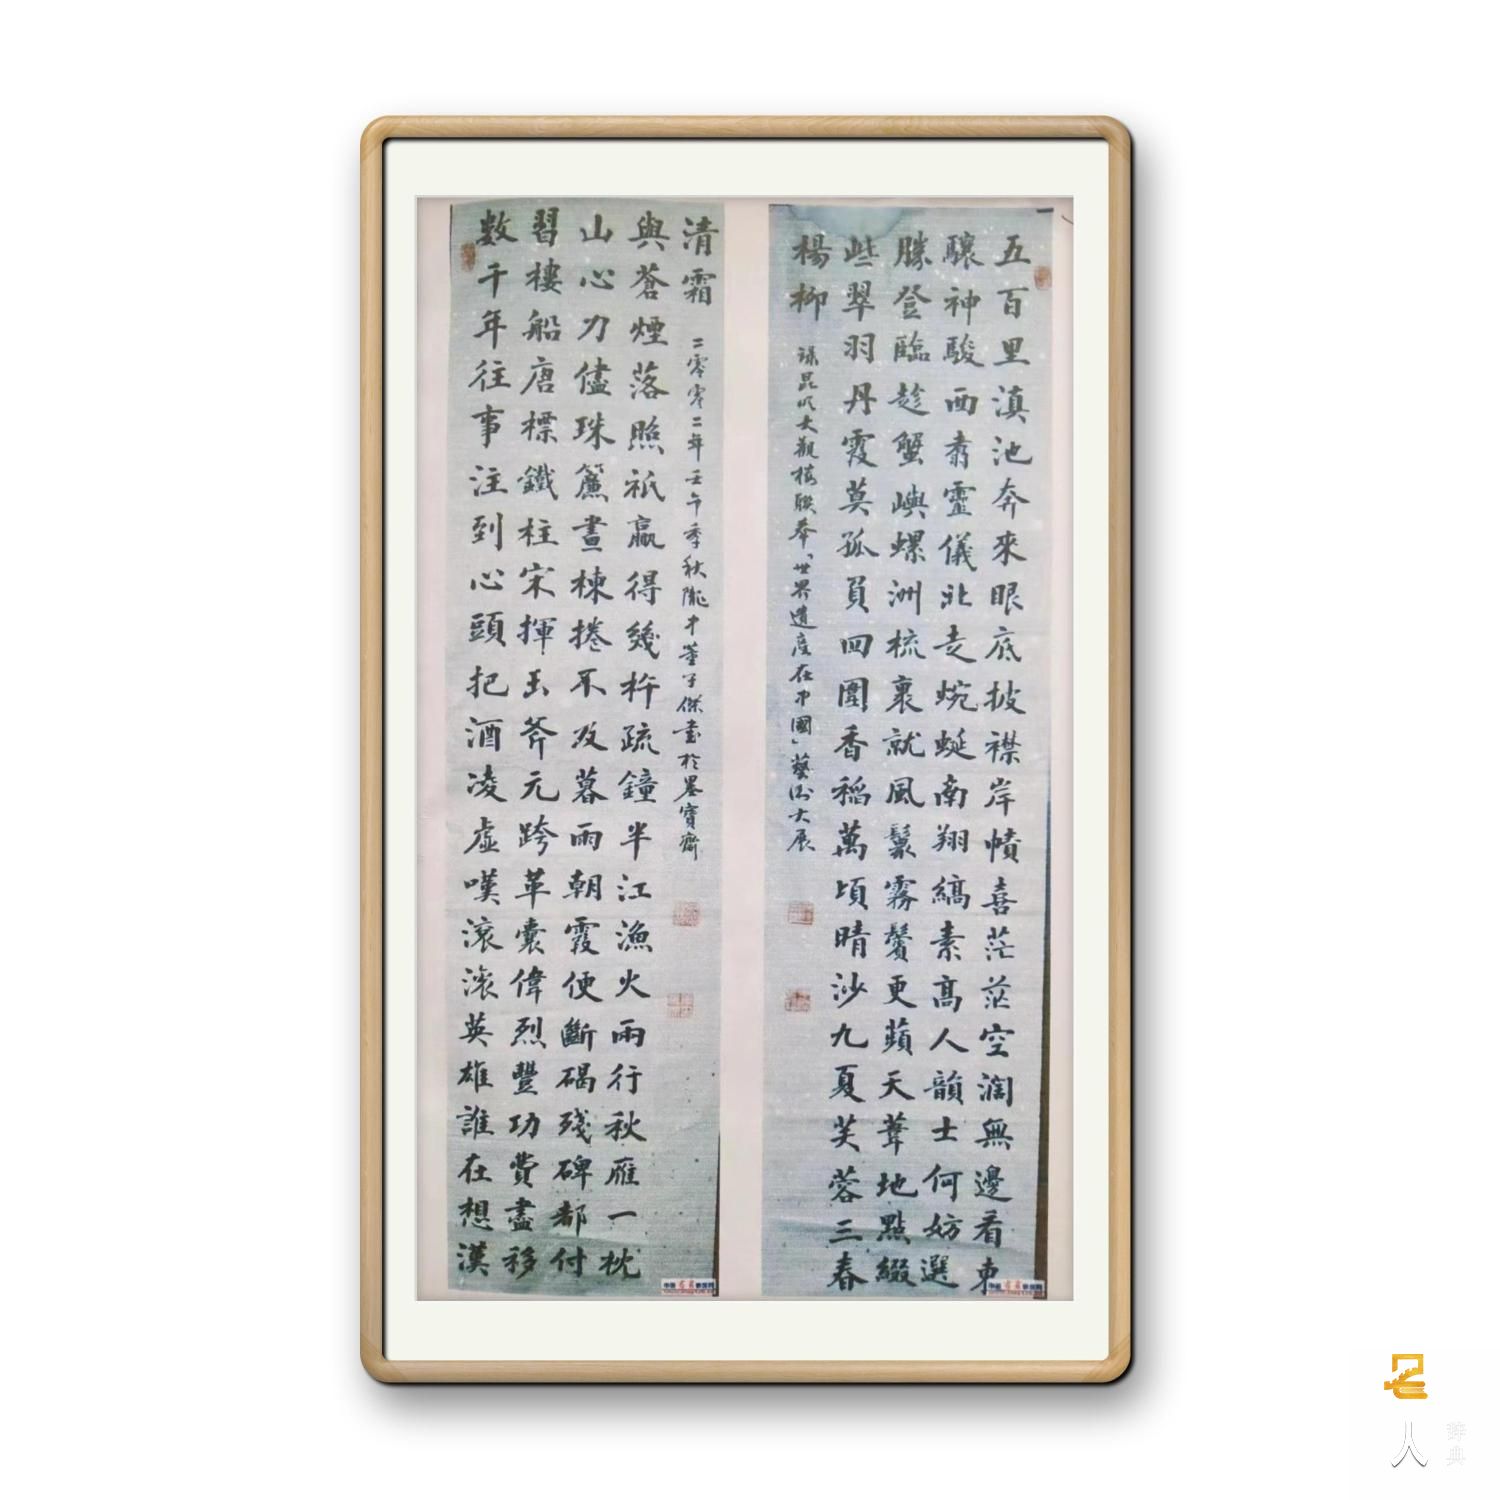 五百里滇池奔來眼底披襟岸幘喜茫茫空濶無邊看東
驤神駿西翥靈儀北走蜿蜒南翔縞素高人韻士何妨選
勝登臨趁蟹嶼螺洲梳裹就風鬟霧鬢更蘋天葦地點綴
些翠羽丹霞莫孤負四圍香稻萬頃晴沙九夏芙蓉三春
楊柳
錄昆明大觀樓聯奉「世界遺產在中國」藝術大展
數千年往事注到心頭把酒凌虛嘆滾滾英雄誰在想漢
習樓船唐標鐵柱宋揮玉斧元跨革囊偉烈豐功費盡移
山心力儘珠簾畫棟捲不及暮雨朝霞便斷碣殘碑都付
與蒼煙落照祇贏得幾杵疏鐘半江漁火兩行秋雁一枕
清霜
二零零二年壬午季秋隴中董子傑書於墨寶齋
人
辞典